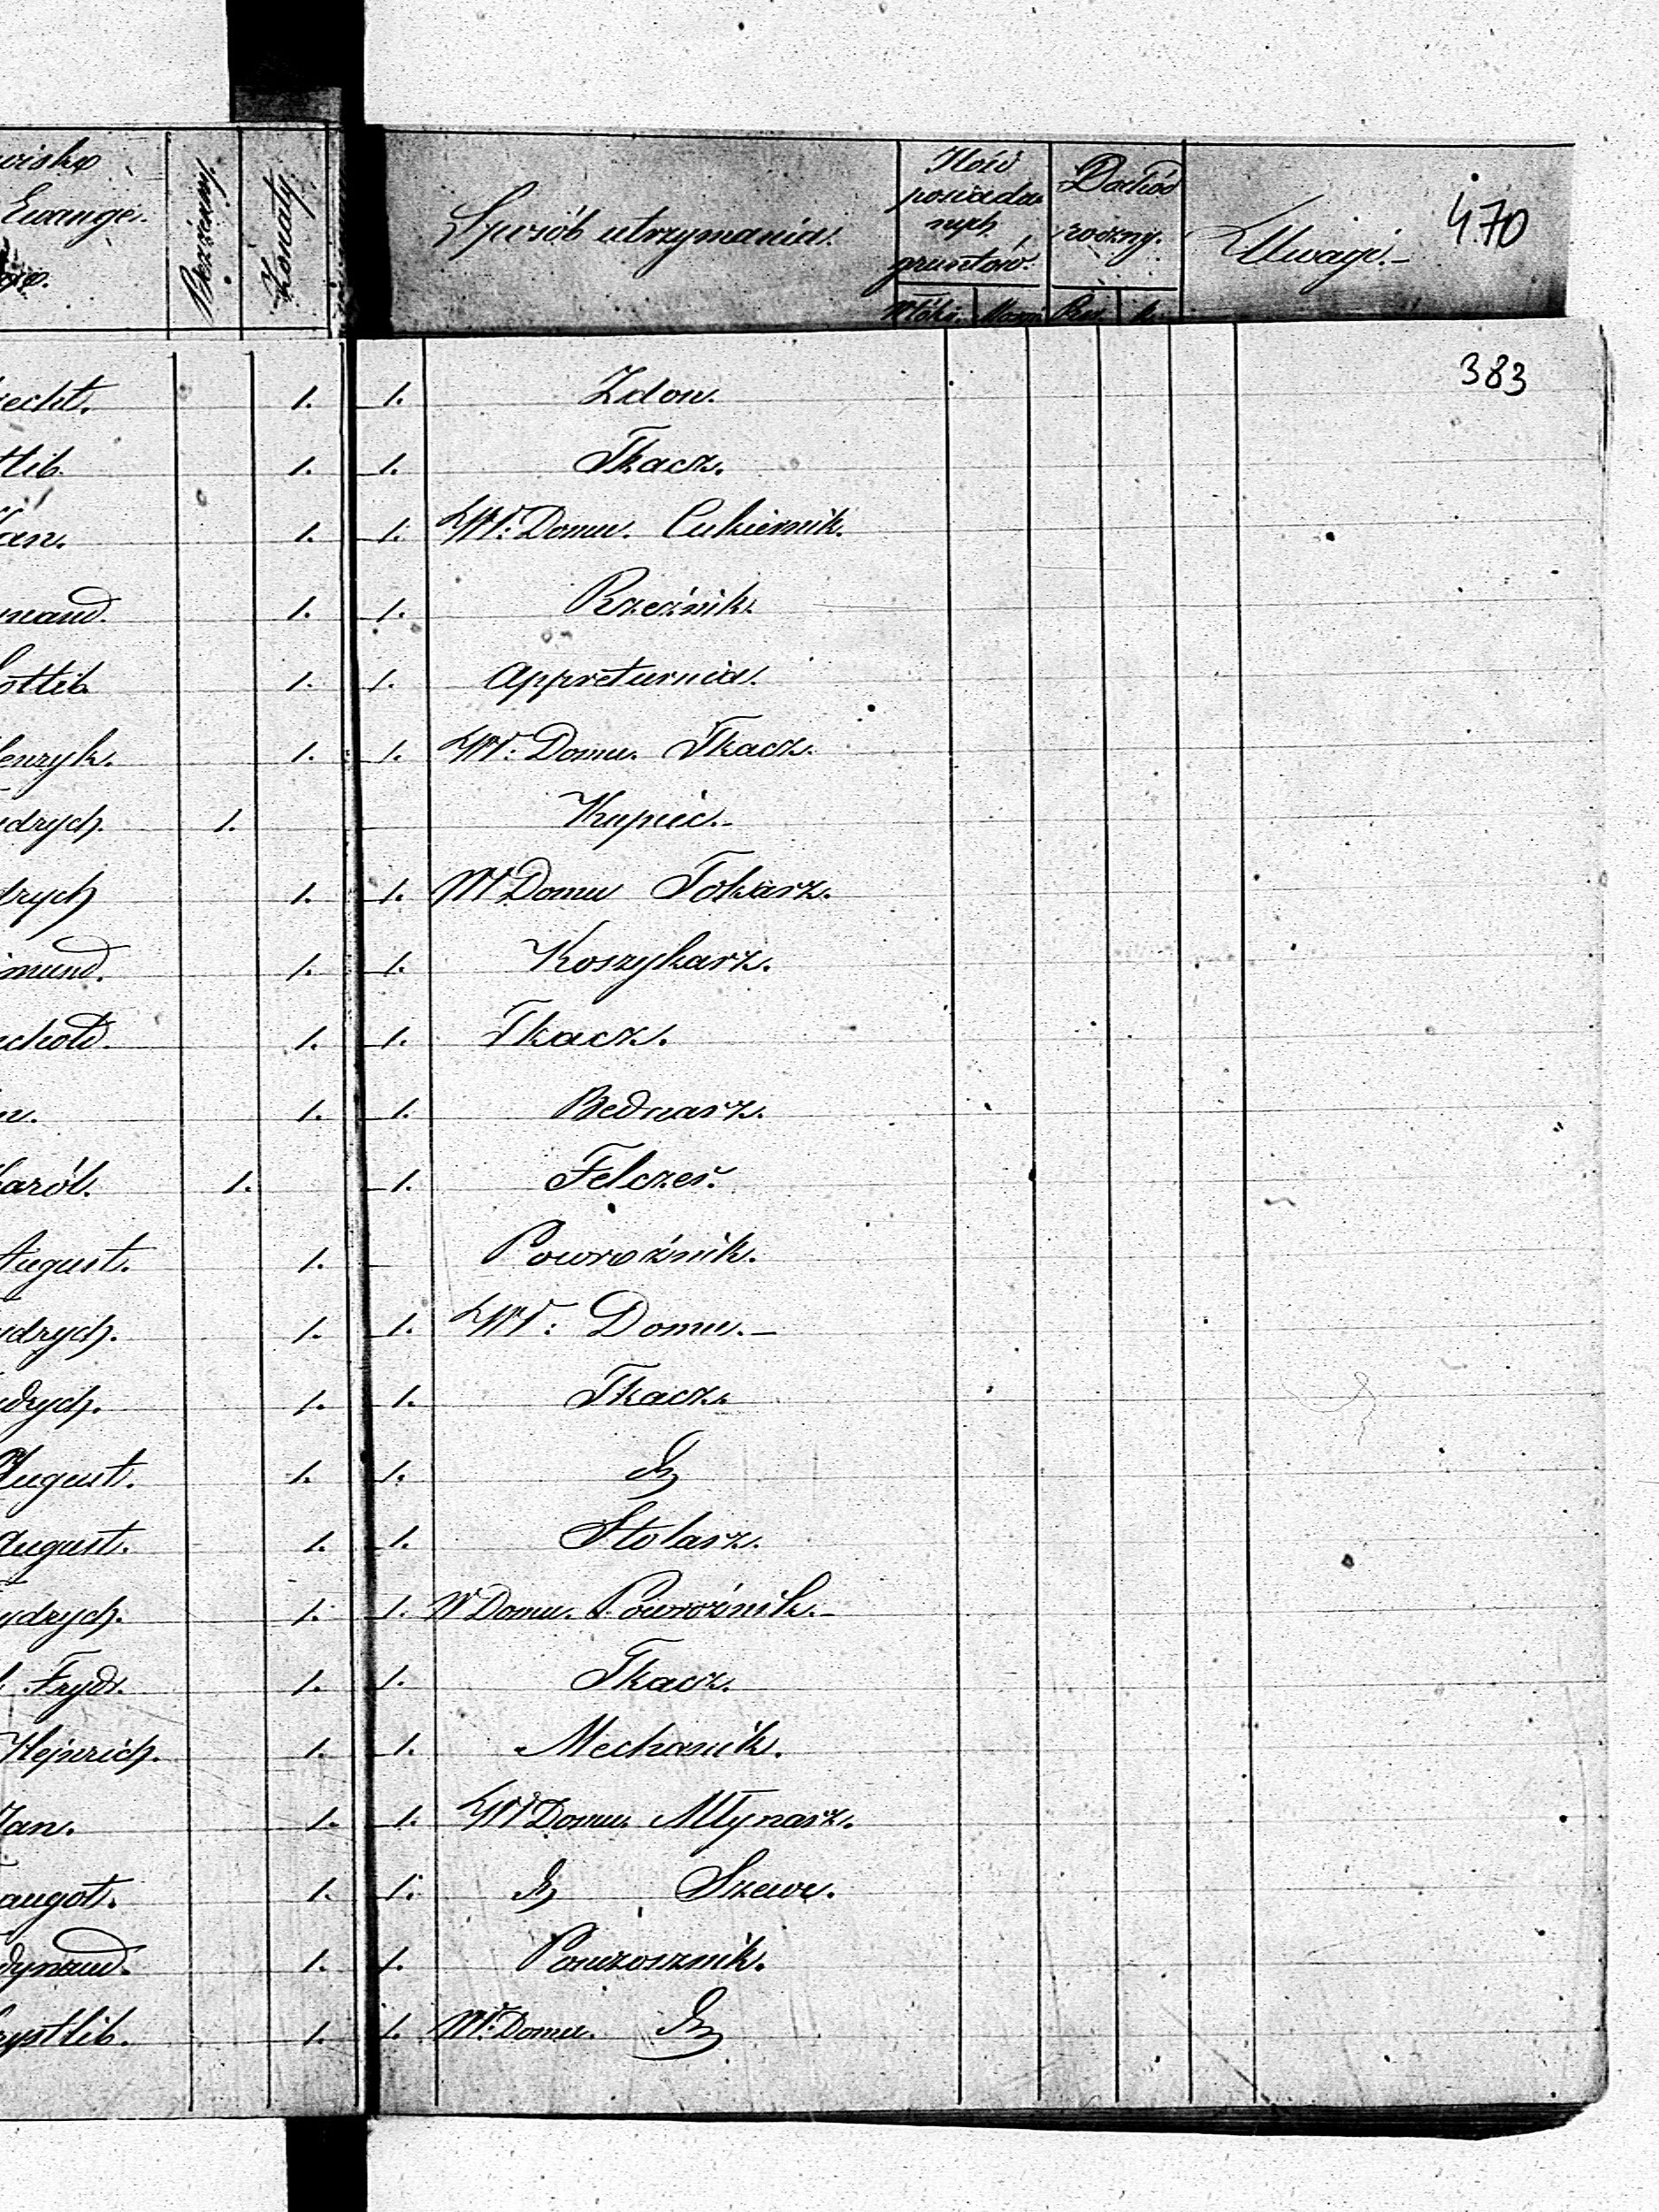 Ewange.
Bezżenny.
Żonaty
Sposób utrzymania.
Ilość
posiada-
nych
gruntów.
Włók. Morg.
Dochód
roczny.
Rs. k.
Uwagi.-
470
383
echt. 1. 1. Zdon.
tlib. 1. 1. Tkacz.
Jan. 1. 1. Wł: Domu. Cukiernik.
nand. 1. 1. Rzeźnik.
Gottlib. 1. 1. Appreturnia.
Henryk. 1. 1. Wł: Domu. Tkacz.
ydrych. 1. Kupiec.-
drych 1. 1. Wł Domu Tokarz.
mund. 1. 1. Koszykarz.
chold. 1. 1. Tkacz.
n. 1. 1. Bednarz.
Karól. 1. 1. Felczer.
August. 1. Powroźnik.
ydrych. 1. 1. Wł: Domu.-
ydrych. 1. 1. Tkacz.
August. 1. 1.
August. 1. 1. Stolarz.
ydrych. 1. 1. W Domu. Powroźnik.-
Frydr. 1. 1. Tkacz.
Hejnrich. 1. 1. Mechanik.
Jan. 1. 1. Wł Domu. Młynarz.
augot. 1. 1. Szewc.
dynand. 1. 1. Ponczosznik.
rystlib. 1. 1. Wł: Domu.